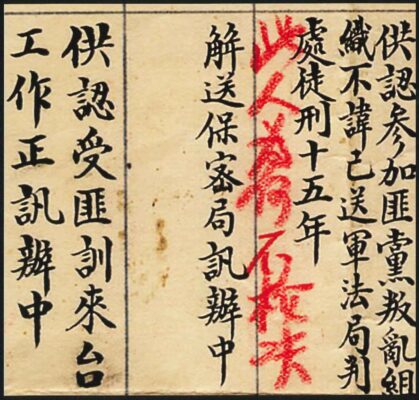 供認參加匪黨叛亂組
織不諱已送軍法局判
處徒刑十五年
此人為何不槍決
解送保密局訊辦中
供認受匪訓來台
工作正訊辦中